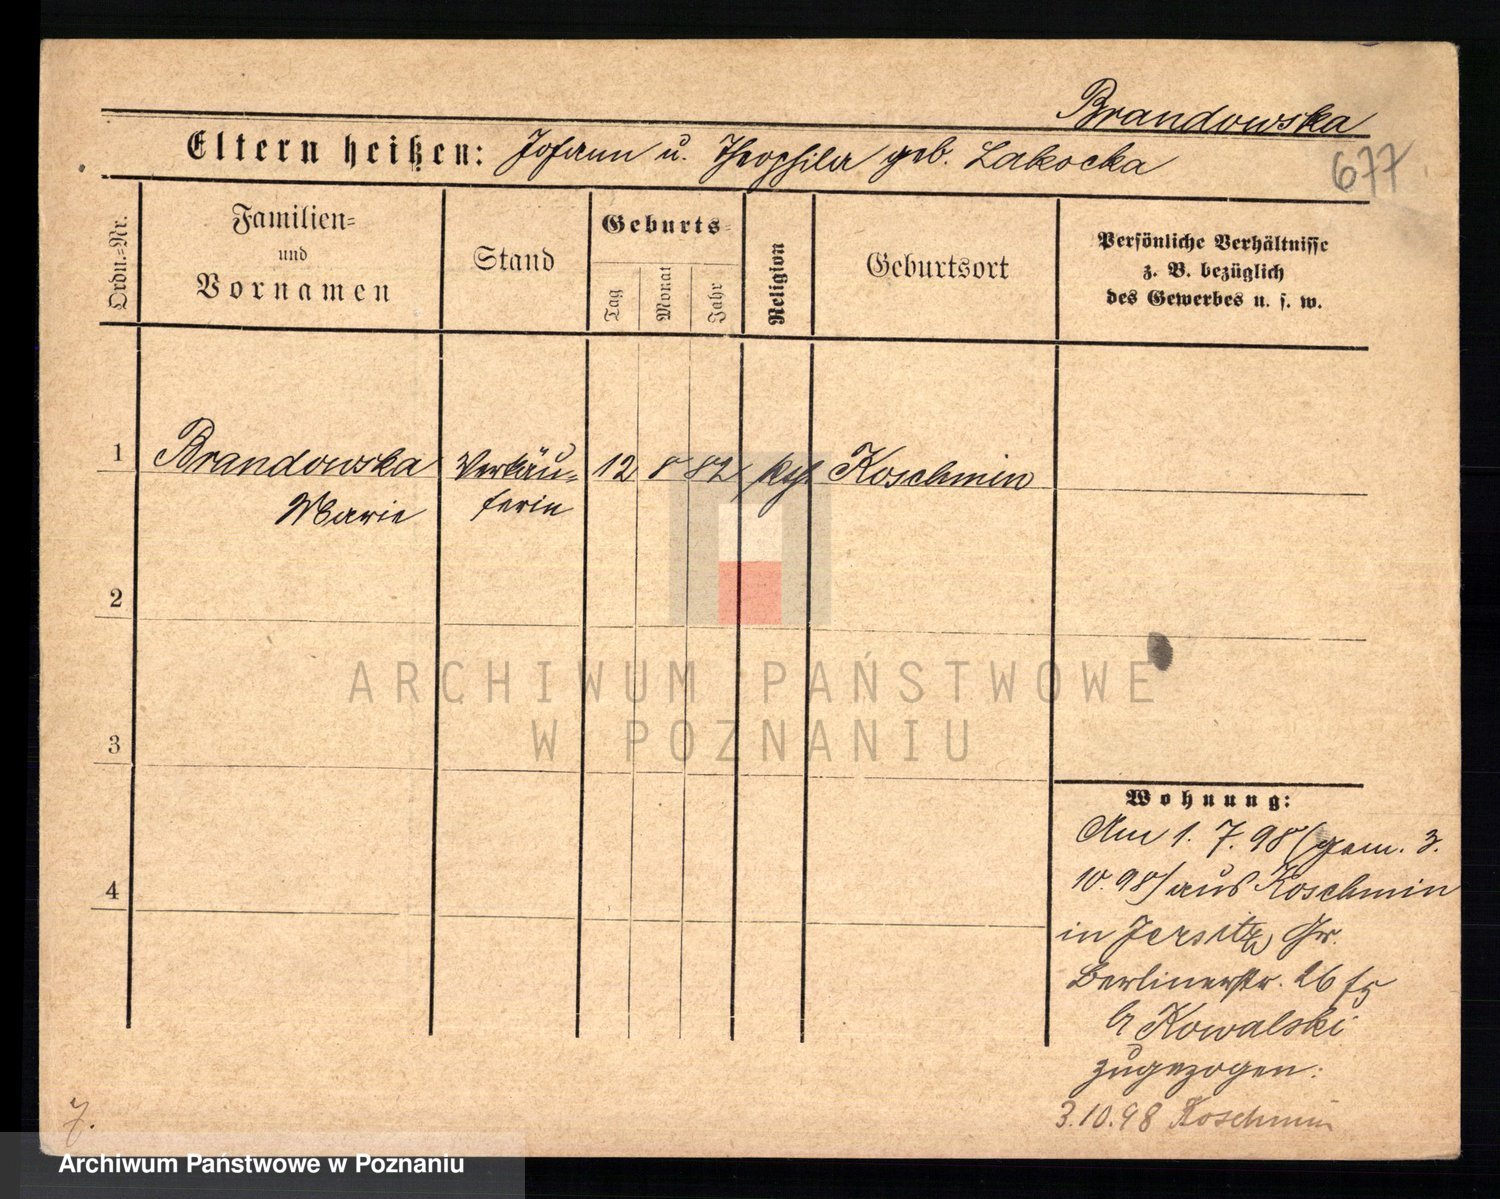 Brandowska
Eltern heißen: Johann u. Theophila geb. Lakocka
677
Ordn.=Nr.
Familien=
und
Vornamen
Stand
Geburts=
Tag
Monat
Jahr
Religion
Geburtsort
Persönliche Verhältnisse
z. B. bezüglich
des Gewerbes u. s. w.
1
Brandowska
Marie
Verkäu=
ferin
12
8
82
kth.
Koschmin
2
3
4
ARCHIWUM PAŃSTWOWE
W POZNANIU
Wohnung:
Am 1. 7. 98 (gem. 3.
10. 98) aus Koschmin
in Jersitz, Gr.
Berlinerstr. 26
b/ Kowalski
zugezogen.
3.10.98 Koschmin
7.
Archiwum Państwowe w Poznaniu